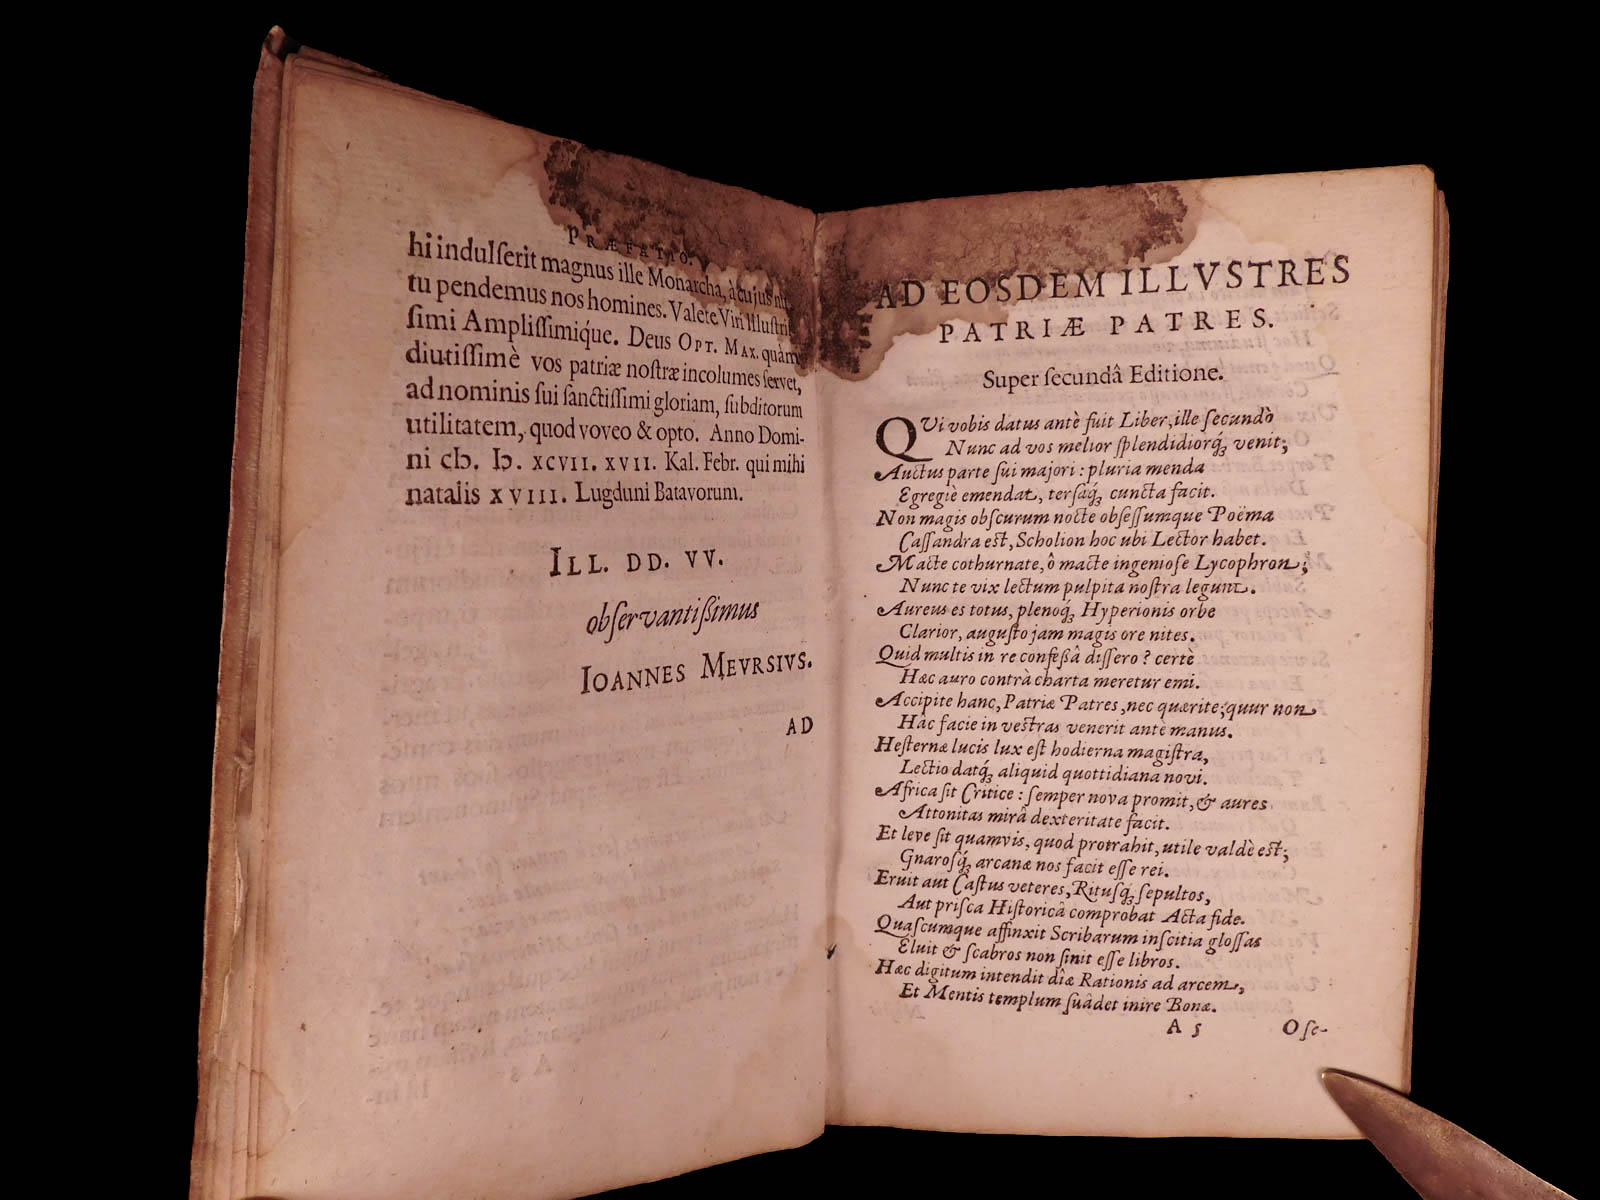 PRÆFATIO.
hi indulſerit magnus ille Monarcha, à cujus nu-
tu pendemus nos homines. Valete Viri Illuſtriſ-
ſimi Ampliſſimíque. Deus OPT. MAX. quàm
diutiſſimè vos patriæ noſtræ incolumes ſervet,
ad nominis ſui ſanctiſſimi gloriam, ſubditorum
utilitatem, quod voveo & opto. Anno Domi-
ni cIɔ. Iɔ. XCVII. XVII. Kal. Febr. qui mihi
natalis XVIII. Lugduni Batavorum.
ILL. DD. VV.
obſervantißimus
IOANNES MEVRSIVS.
AD
AD EOSDEM ILLVSTRES
PATRIÆ PATRES.
Super ſecundâ Editione.
QVi vobis datus antè fuit Liber, ille ſecundò
Nunc ad vos melior ſplendidiorq́; venit;
Auctus parte ſui majori: pluria menda
Egregiè emendat, terſaq́; cuncta facit.
Non magis obſcurum nocte obſeſſumque Poëma
Caſſandra eſt, Scholion hoc ubi Lector habet.
Macte cothurnate, ô macte ingenioſe Lycophron;
Nunc te vix lectum pulpita noſtra legunt.
Aureus es totus, plenoq́; Hyperionis orbe
Clarior, auguſto jam magis ore nites.
Quid multis in re confeßâ diſſero? certè
Hæc auro contrà charta meretur emi.
Accipite hanc, Patriæ Patres, nec quærite; quur non
Hâc facie in veſtras venerit ante manus.
Heſternæ lucis lux eſt hodierna magiſtra,
Lectio datq́; aliquid quottidiana novi.
Africa ſit Critice: ſemper nova promit, & aures
Attonitas mirâ dexteritate facit.
Et leve ſit quamvis, quod protrahit, utile valdè eſt;
Gnaroſq́; arcanæ nos facit eſſe rei.
Eruit aut Caſtus veteres, Rituſq́; ſepultos,
Aut priſca Hiſtoricâ comprobat Acta fide.
Quaſcumque affinxit Scribarum inſcitia gloſſas
Eluit & ſcabros non ſinit eſſe libros.
Hæc digitum intendit dîæ Rationis ad arcem,
Et Mentis templum ſuâdet inire Bonæ.
A 5 Oſe-